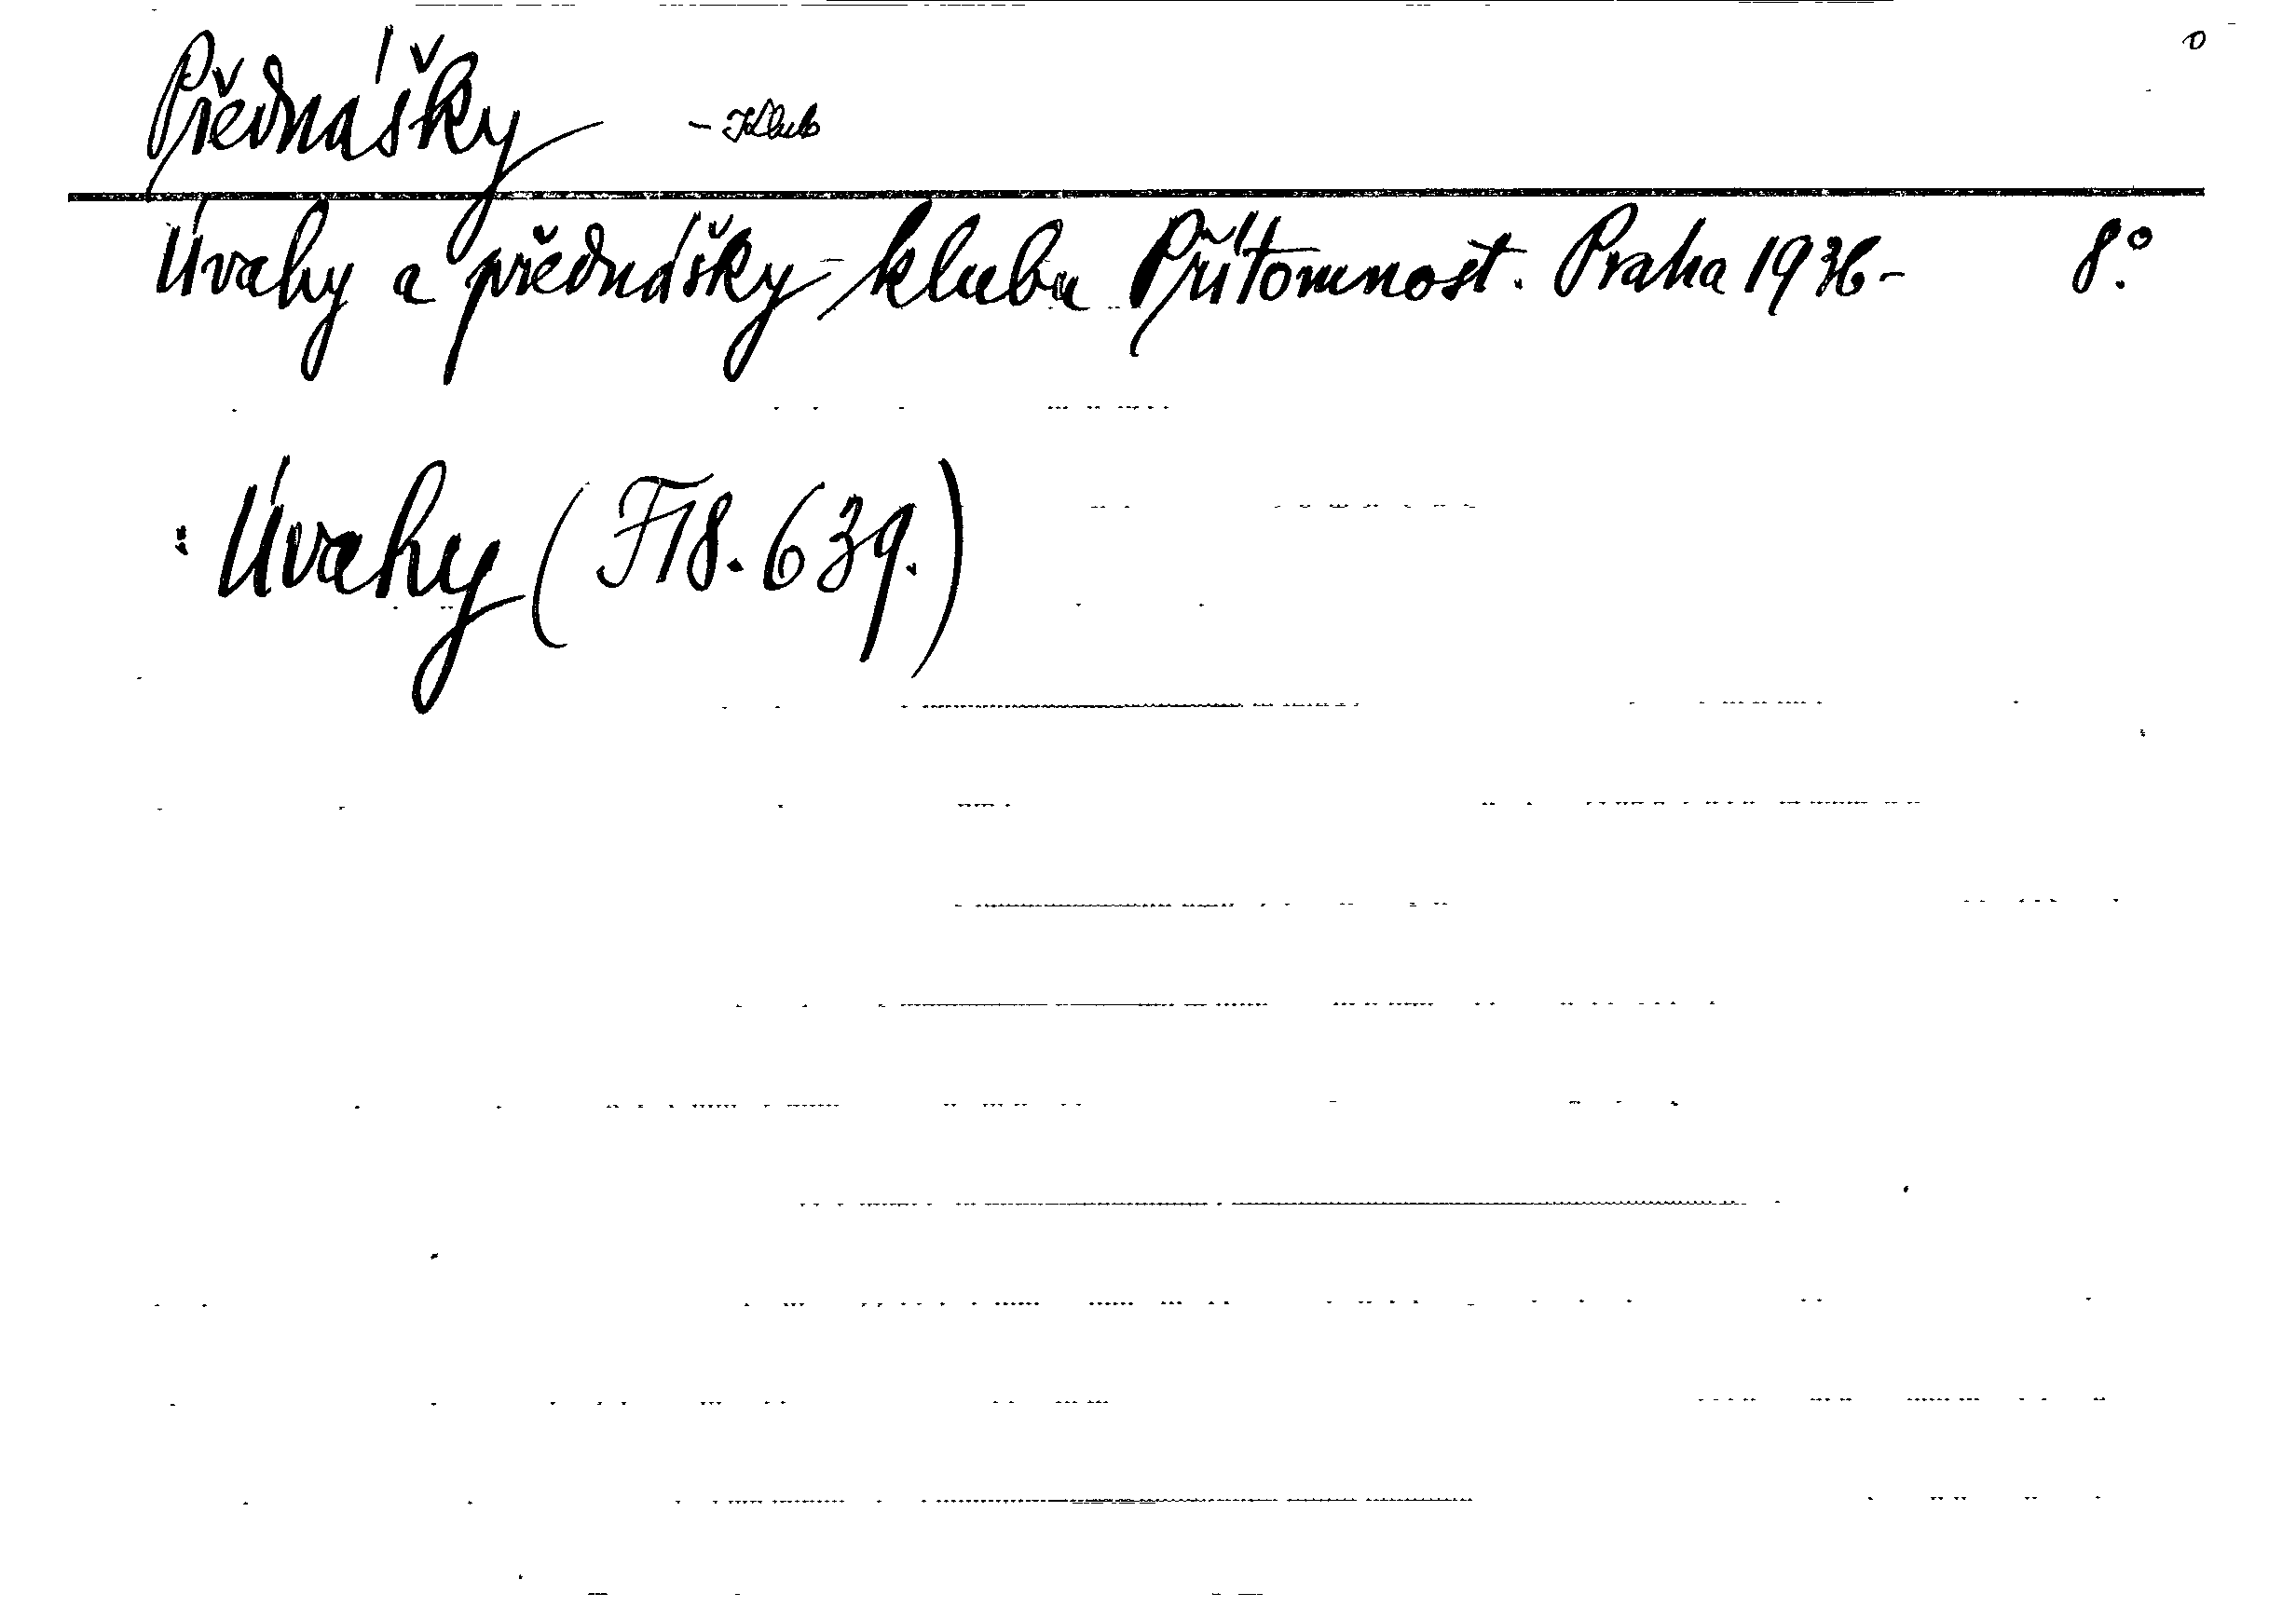 Přednášky - Klub
Úvahy a přednášky klubu Přítomnost. Praha 1936- 8.°
: Úvahy (F 18.639.)